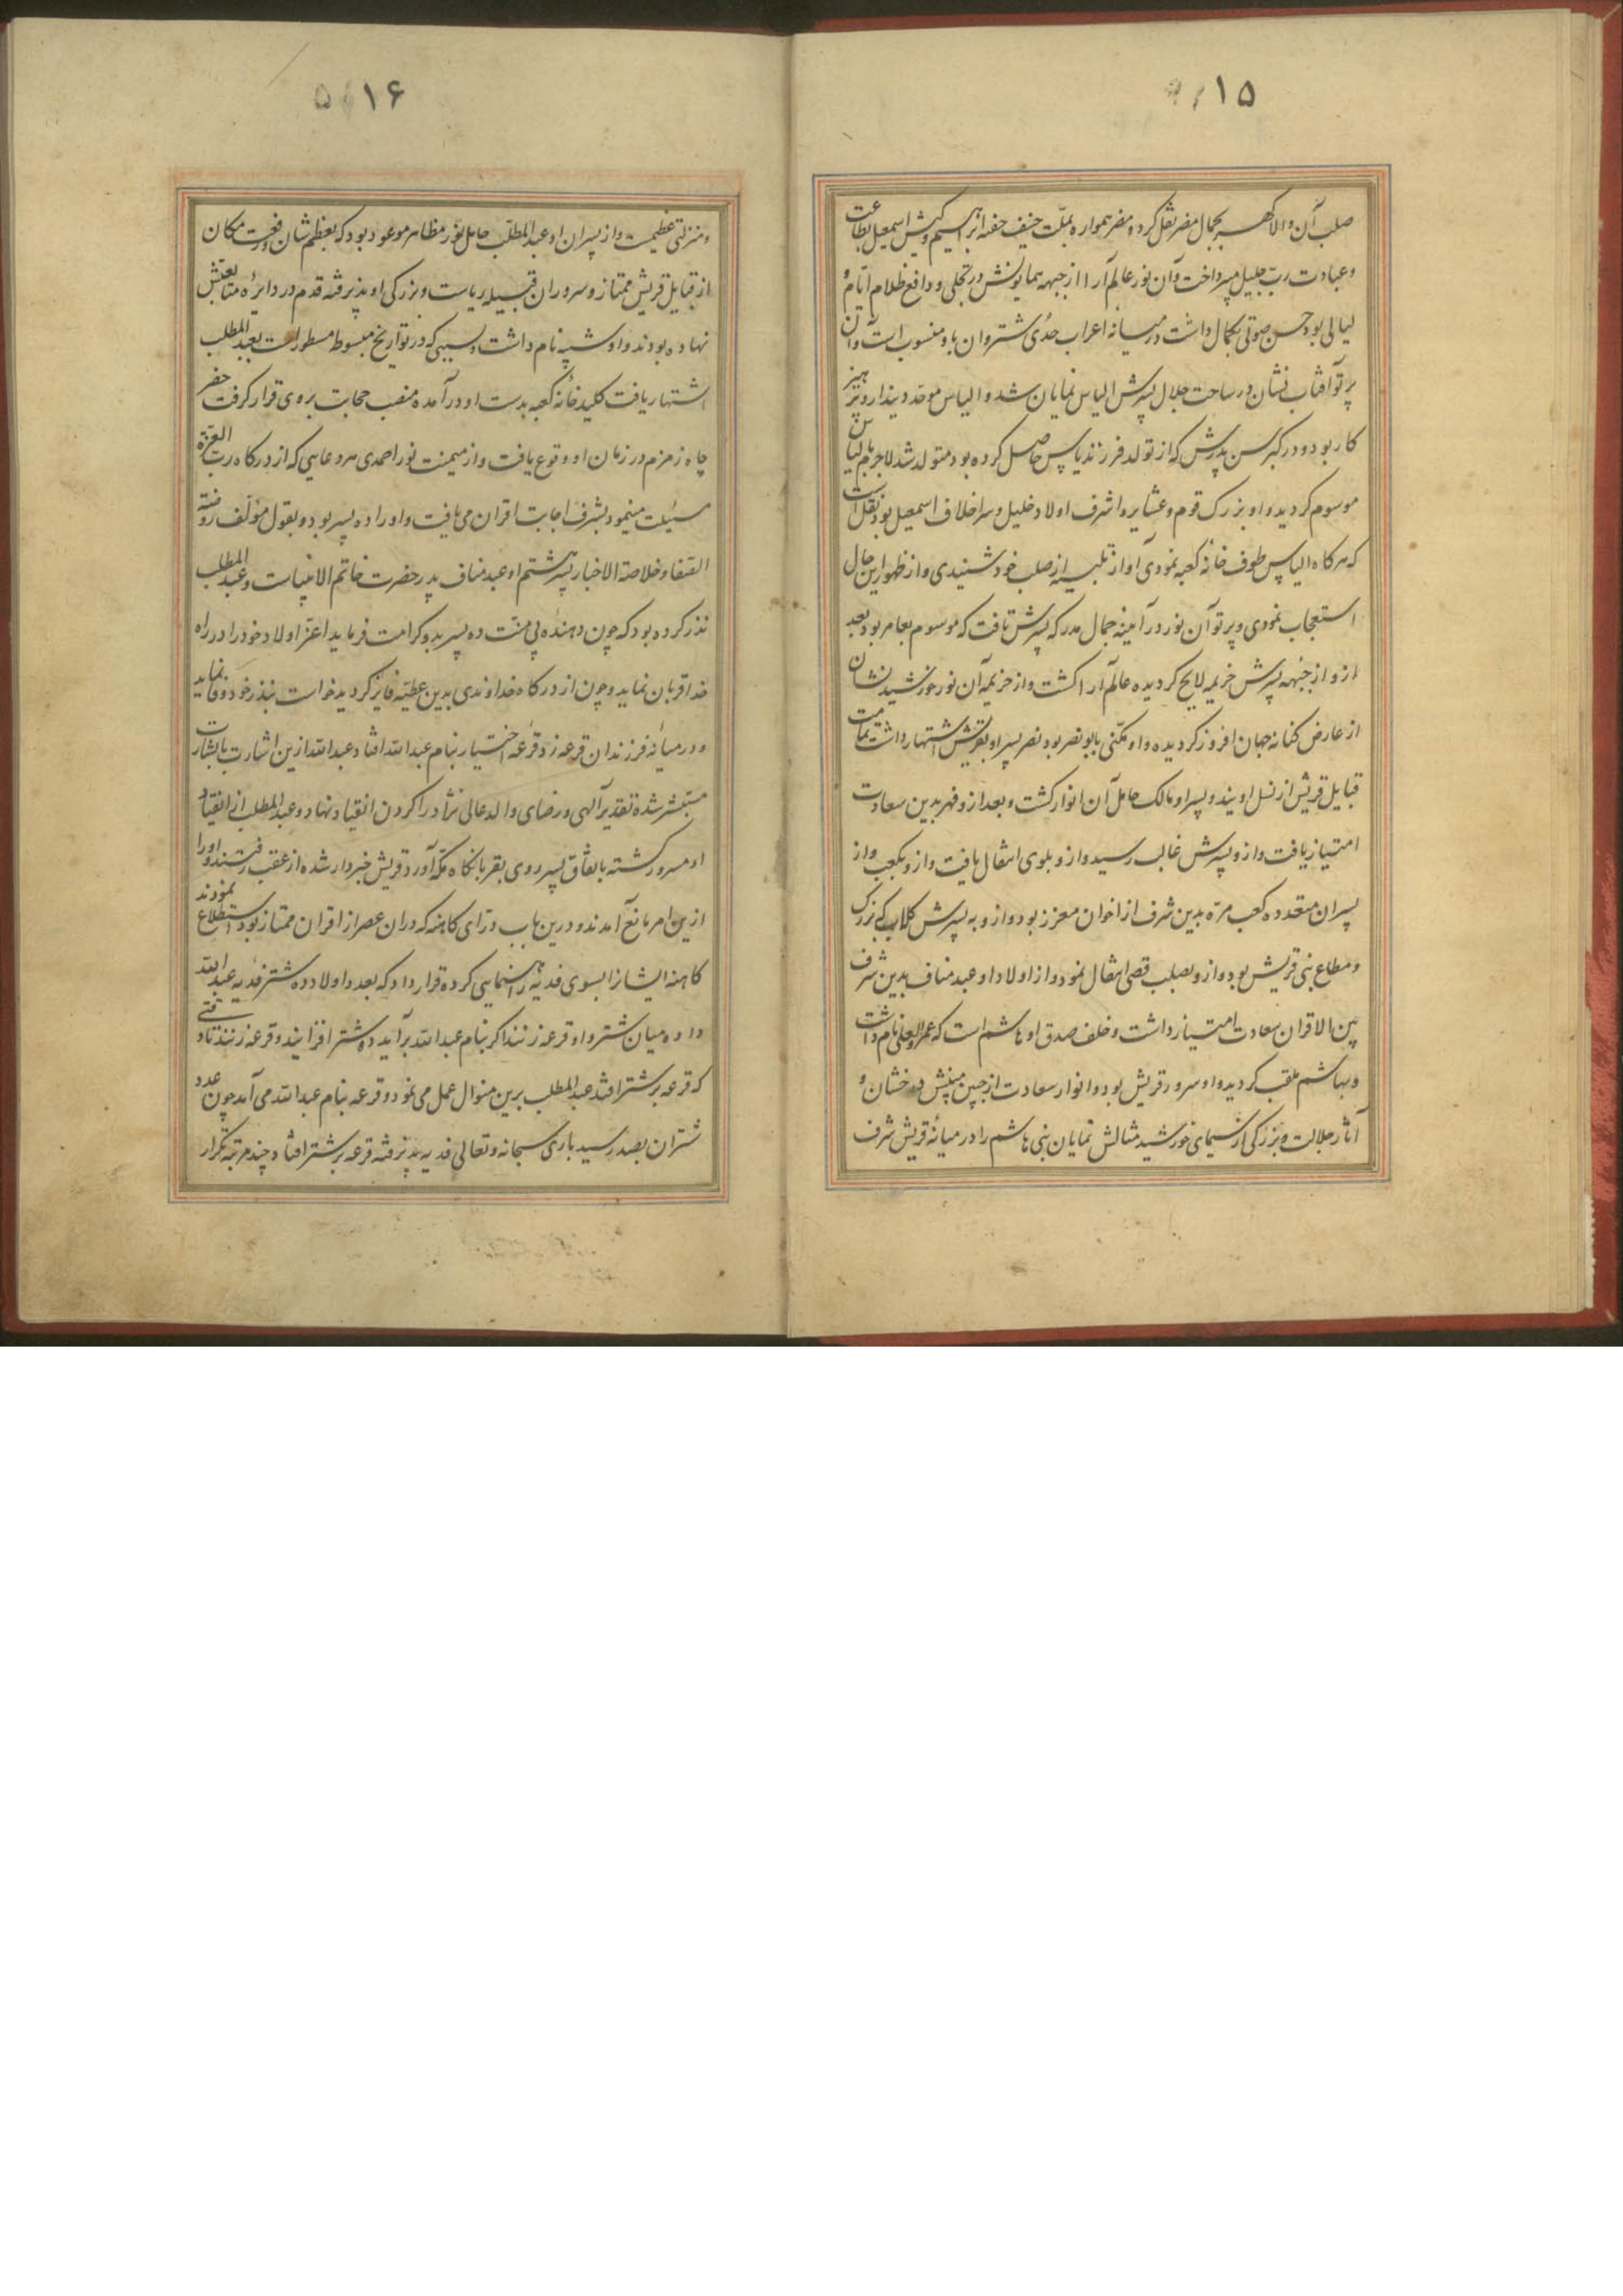 ۱۵
صلب آن والا گهر بجمال مضر نقل کرد و مضر همواره بملت حنیف حفنه ابراهیم و کیش اسمعیل بطاعت
و عبادت رب جلیل میپرداخت و آن نور عالم آرا از جبهه همایونش در تجلی و دافع ظلام ایام و
لیالی بود حسن صوتی بکمال داشت در میانه اعراب حدی شتروان باو منسوب است و آن
پرتو آفتاب نشان در ساحت جلال پسرش الیاس نمایان شد و الیاس موحد و دیندار و پرهیز
کار بود و در کبر سن پدرش که از تولد فرزند یاس حاصل کرده بود متولد شد لاجرم بالیاس
موسوم گردید و او بزرک قوم و عشایر و اشرف اولاد خلیل و سر اخلاف اسمعیل بود نقل است
که هر کاه الیاس طوف خانه کعبه نمودی آواز تلبیه از صلب خود شنیدی و از ظهور این حال
استعجاب نمودی و پرتو آن نور در آیینه جمال مدرکه پسرش تافت که موسوم بعامر بود بعد
ازو از جبهه پسرش خزیمه لایح کردیده عالم آرا کشت و از خزیمه آن نور خورشید نشان
از عارض کنانه جهان افروز کردیده و او مکنی بابو نصر بود نصر پسر او بقریش اشتهار داشت تمامت
قبایل قریش از نسل اویند و پسر او مالک حامل آن انوار کشت و بعد ازو فهر بدین سعادت
امتیاز یافت و ازو پسرش غالب رسید و ازو بلوی انتقال یافت و ازو بکعب و از
پسران متعدده کعب مره بدین شرف از اخوان معزز بود و ازو به پسرش کلاب که بزرک
و مطاع بنی قریش بود و ازو بصلب قصی انتقال نمود و از اولاد او عبد مناف بدین شرف
بین الاقران سعادت امتیاز داشت و خلف صدق او هاشم است که عمرو العلی نام داشت
و بهاشم ملقب کردید و او سرور قریش بود و انوار سعادت از جبین مبینش درخشان و
آثار جلالت و بزرکی از سیمای خورشید مثالش نمایان بنی هاشم را در میانه قریش شرف
۱۶
و منزلتی عظیمست و از پسران او عبد المطلب حامل نور مظاهر موعود بود که بعظم شان و رفعت مکان
از قبایل قریش ممتاز و سروران قبیله ریاست و بزرکی او پذیرفته قدم در دایره متابعتش
نهاده بودند و او شیبه نام داشت و بسببی که در تواریخ مبسوط مسطور است بعبد المطلب
اشتهار یافت کلید خانه کعبه بدست او در آمده منصب حجابت بروی قرار کرفت حفر
چاه زمزم در زمان او وقوع یافت و از میمنت نور احمدی هر دعایی که از درکاه رب العزه
مسئلت مینمود بشرف اجابت اقران می یافت و او را ده پسر بود و بقول مؤلف روضة
الصفا و خلاصة الاخبار پسر هشتم او عبد مناف پدر حضرت خاتم الانبیاست و عبد المطلب
نذر کرده بود که چون دهنده بی منت ده پسر بدو کرامت فرماید اعز اولاد خود را در راه
خدا قربان نماید و چون از درکاه خداوندی بدین عطیه فایز کردید خواست بنذر خود وفا نماید
و در میانه فرزندان قرعه زد قرعه اختیار بنام عبد الله افتاد عبد الله ازین اشارت با بشارت
مستبشر شده تقدیر آلهی و رضای والد عالی نژاد را کردن انقیاد نهاد و عبد المطلب از انقیاد
او مسرور کشته باتفاق پسر روی بقربانکاه مکه آورد قریش خبردار شده از عقب رفتند و او را
ازین امر مانع آمدند و درین باب و رای کاهنه که دران عصر از اقران ممتاز بود استطلاع نمودند
کاهنه ایشانرا بسوی فدیه راهنمایی کرده قرار داد که بعد و اولا ده شتر فدیه عبد الله
داده میان شتر و او قرعه زنند اکر بنام عبد الله برآید ده شتر افزایند و قرعه زنند تا وقتی
که قرعه بر شتر افتد عبد المطلب برین منوال عمل می نمود و قرعه بنام عبد الله می آمد چون عدد
شتران بصد رسید باری سبحانه و تعالی فدیه پذیرفته قرعه بر شتر افتاد چند مرتبه تکرار